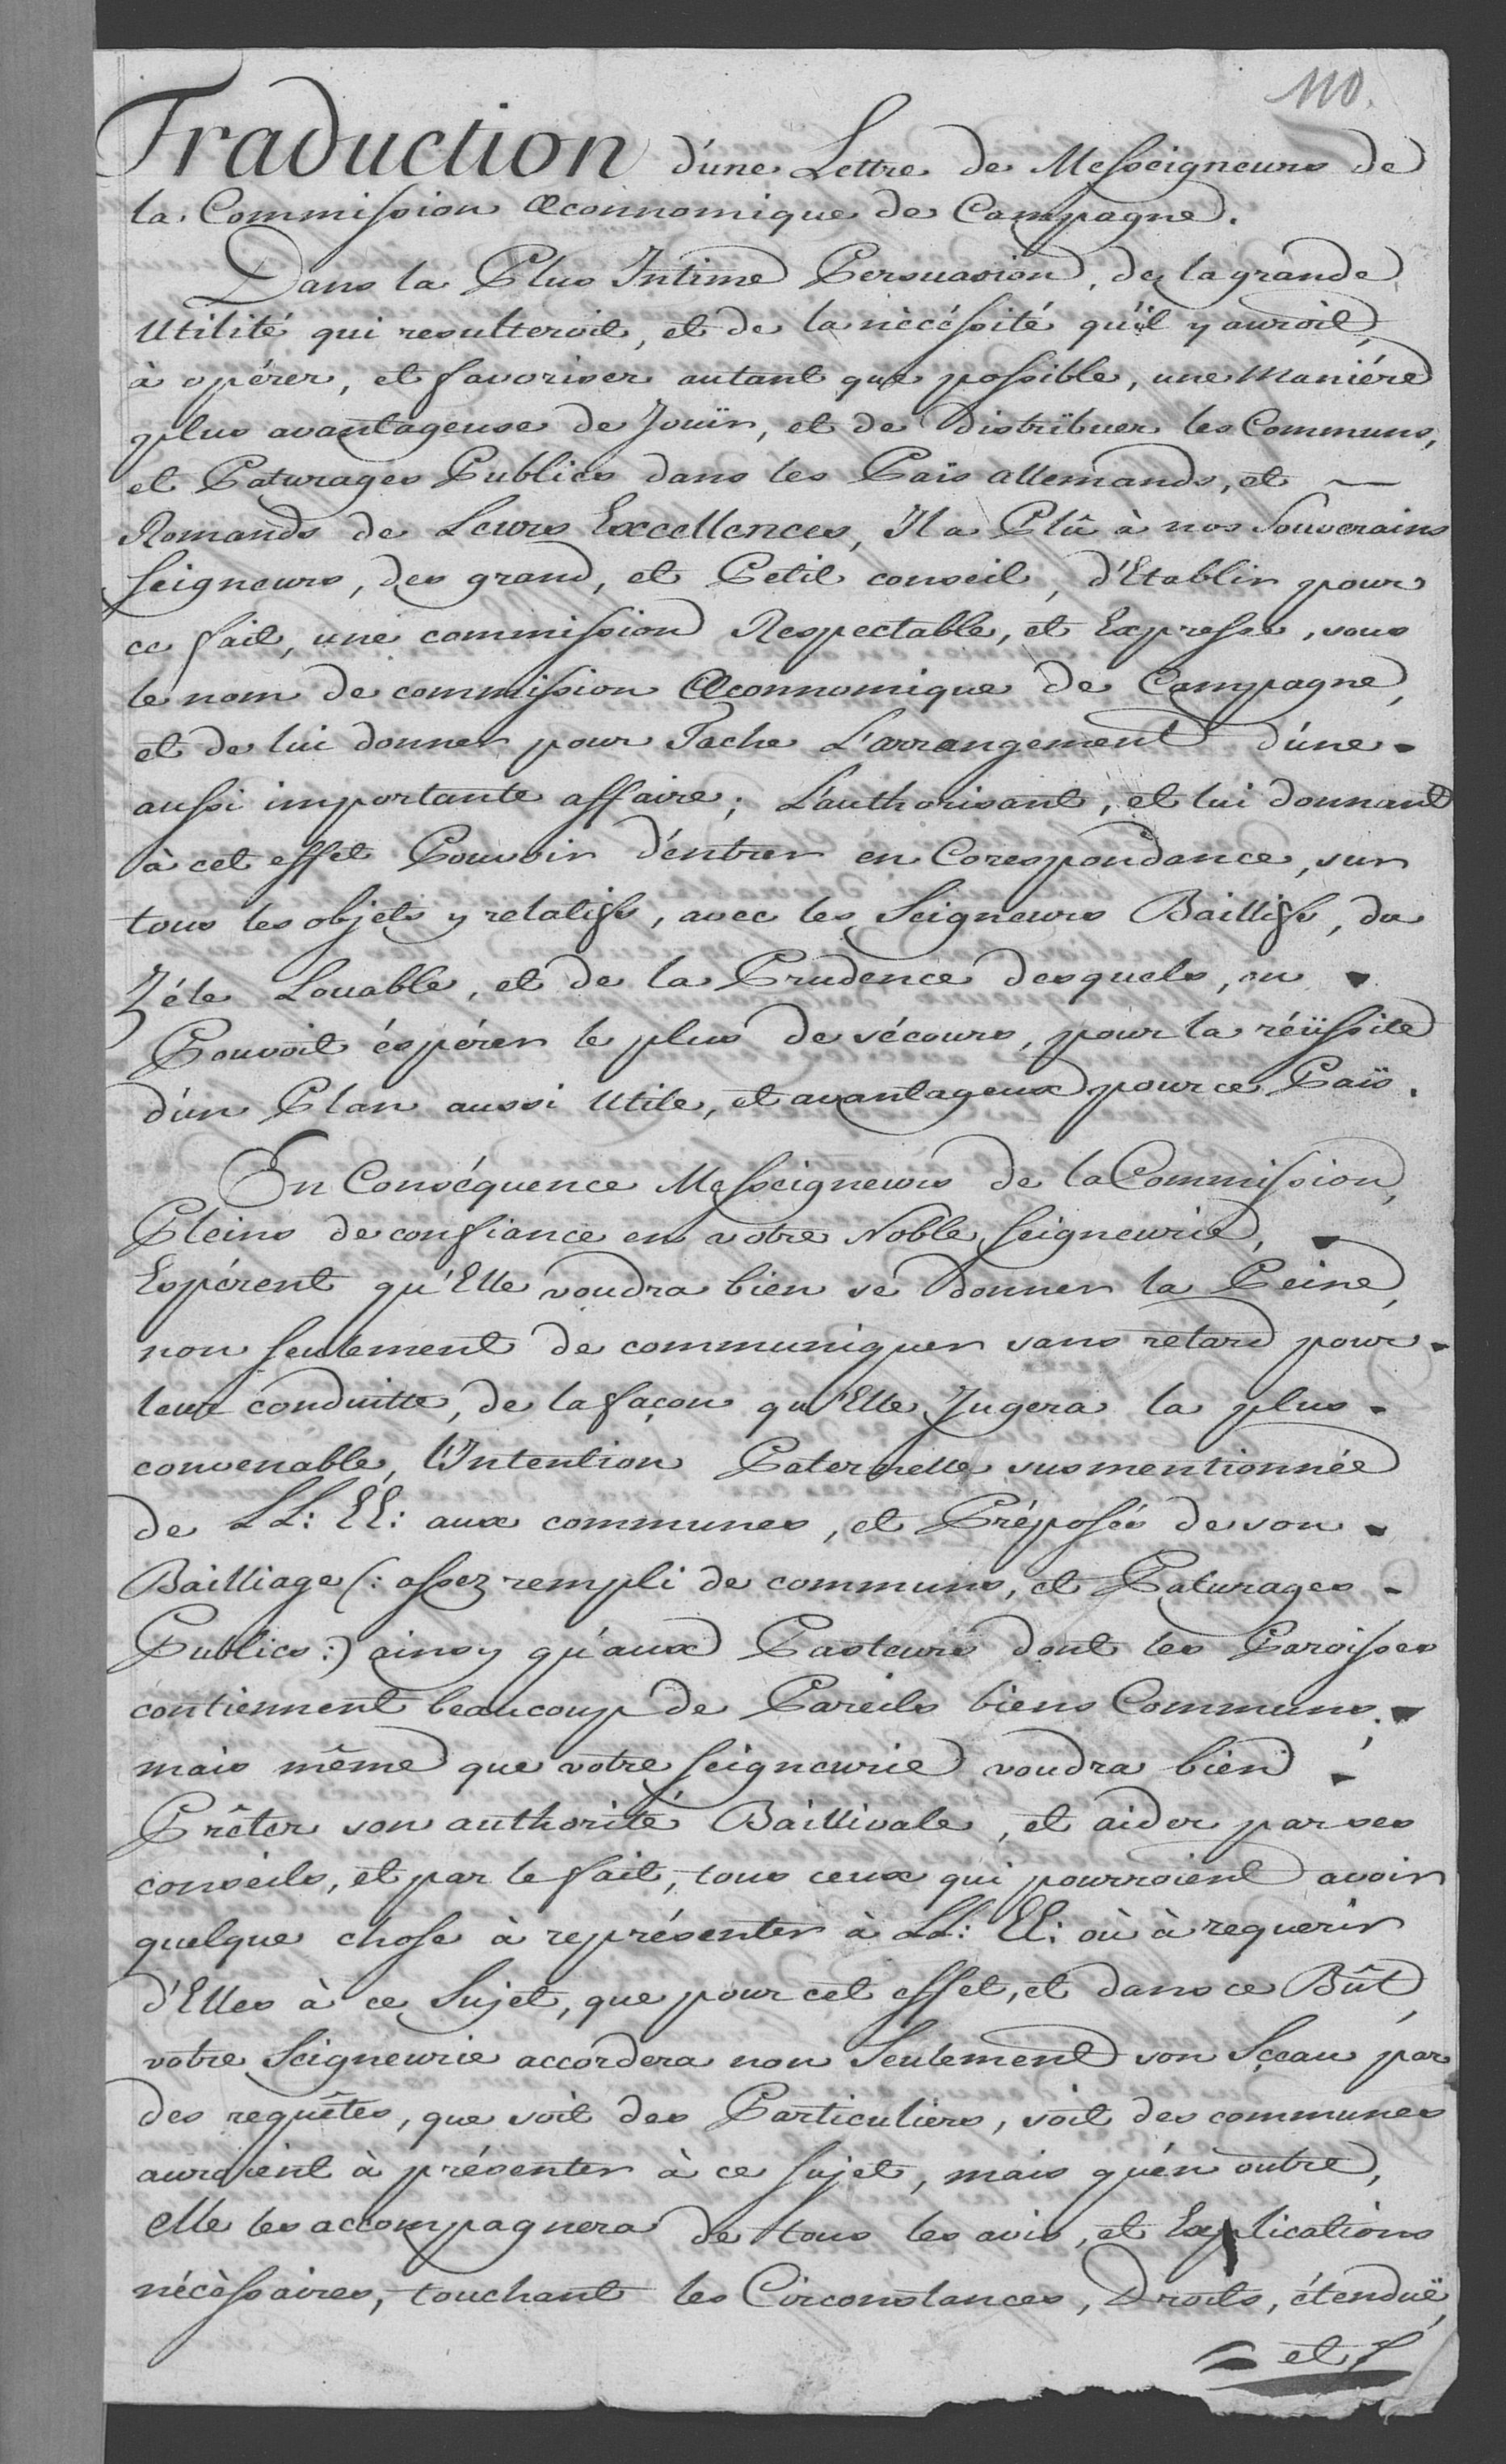 110.
Traduction d'une Lettre de Messeigneurs de
la Commission Œconnomique de Campagne.
Dans la Plus Intime Persuasion, de la grande
Utilité qui resulteroit, et de la nècéssité qu'il y auroit,
à opérer, et favoriser autant que possible, une Maniére
plus avantageuse de Jouïr, et de Distribuer les Communs,
et Paturages Publics dans les Païs allemands, et
Romands de Leurs Excellences, Il a Plû à nos Souverains
Seigneurs, des grand, et Petit conseil, d'Etablir pour
ce fait, une commission Respectable, et Expresse, sous
le nom de commission Œconnomique de Campagne,
et de lui donner pour Tache L'arrangement d'une
aussi importante affaire; L'authorisant, et lui donnant
à cet effet Pouvoir d'entrer en Corespondance, sur
tous les objets y relatifs, avec les Seigneurs Baillifs, du
Zéle Louable, et de la Prudence desquels, on
Pouvoit éspérer le plus de sécours, pour la réüssite
d'un Plan aussi Utile, et avantageux pour ce Païs.
En Conséquence Messeigneurs de la Commission,
Pleins de confiance en votre Noble Seigneurie,
Espérent qu'Elle voudra bien se donner la Peine,
non seulement de communiquer sans retard pour
leur conduitte, de la façon qu'Elle Jugera la plus
convenable, L'Intention Paternelle susmentionnée
de LL: EE: aux communes, et Préposés de son
Bailliage (: assez rempli de communs, et Paturages
Publics :) ainsy qu'aux Pasteurs dont les Paroisses
contiennent beaucoup de Pareils biens Communs.
mais même que votre Seigneurie voudra bien
Prêter son authorité Baillivale, et aider par ses
conseils, et par le fait, tous ceux qui pourroient avoir
quelque chose à représenter à LL: EE: où à requerir
d'Elles à ce Sujet, que pour cet effet, et dans ce Bût,
votre Seigneurie accordera non Seulement son Sçeau par
des requêtes, que soit des Particuliers, soit des communes
auroient à présenter à ce sujet, mais qu'en outre,
elle les accompagnera de tous les avis, et Explications
nécèssaires, touchant les Circonstances, Droits, étenduë,
= et